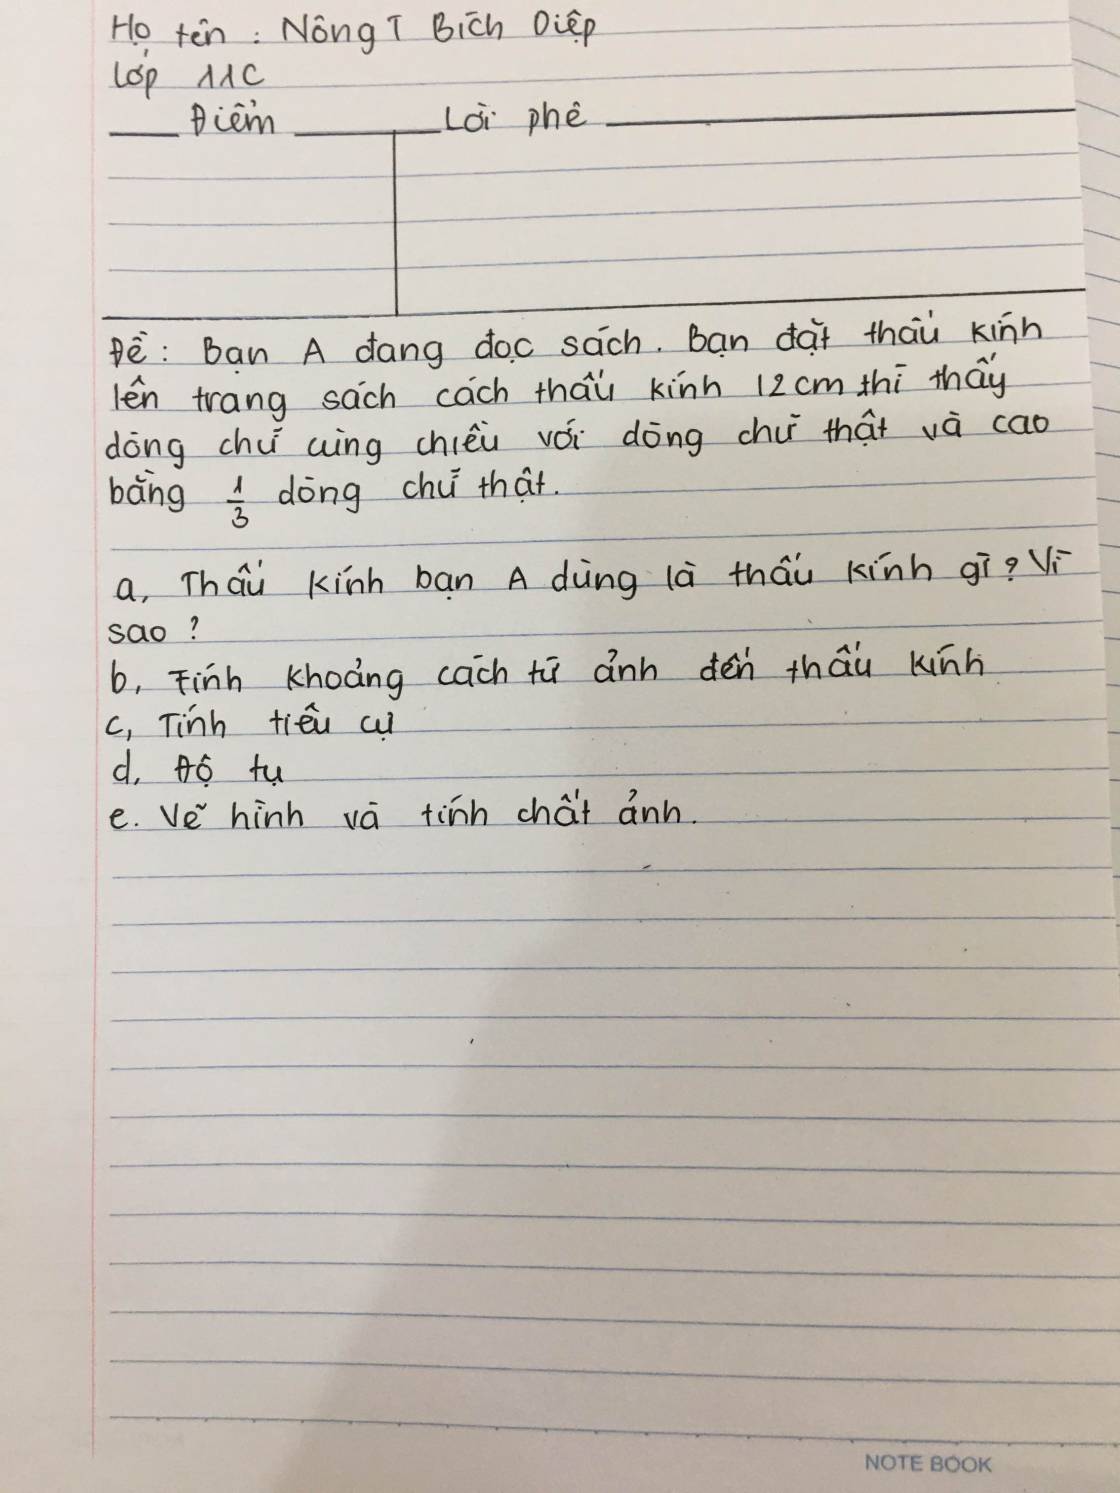 Họ tên : Nông T Bích Diệp
Lớp 11C
Điểm Lời phê
Đề : Bạn A đang đọc sách. Bạn đặt thấu kính
lên trang sách cách thấu kính 12 cm thì thấy
dòng chữ cùng chiều với dòng chữ thật và cao
bằng 1/3 dòng chữ thật.
a, Thấu kính bạn A dùng là thấu kính gì? Vì
sao ?
b, Tính khoảng cách từ ảnh đến thấu kính
c, Tính tiêu cự
d, Độ tụ
e. Vẽ hình và tính chất ảnh.
NOTE BOOK